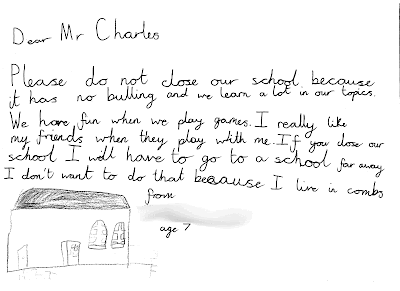 Dear Mr Charles
Please do not close our school because
it has no bulling and we learn a lot in our topics.
We have fun when we play games. I really like
my friends when they play with me. If you close our
school I will have to go to a school far away
I don't want to do that because I live in combs
from
age 7